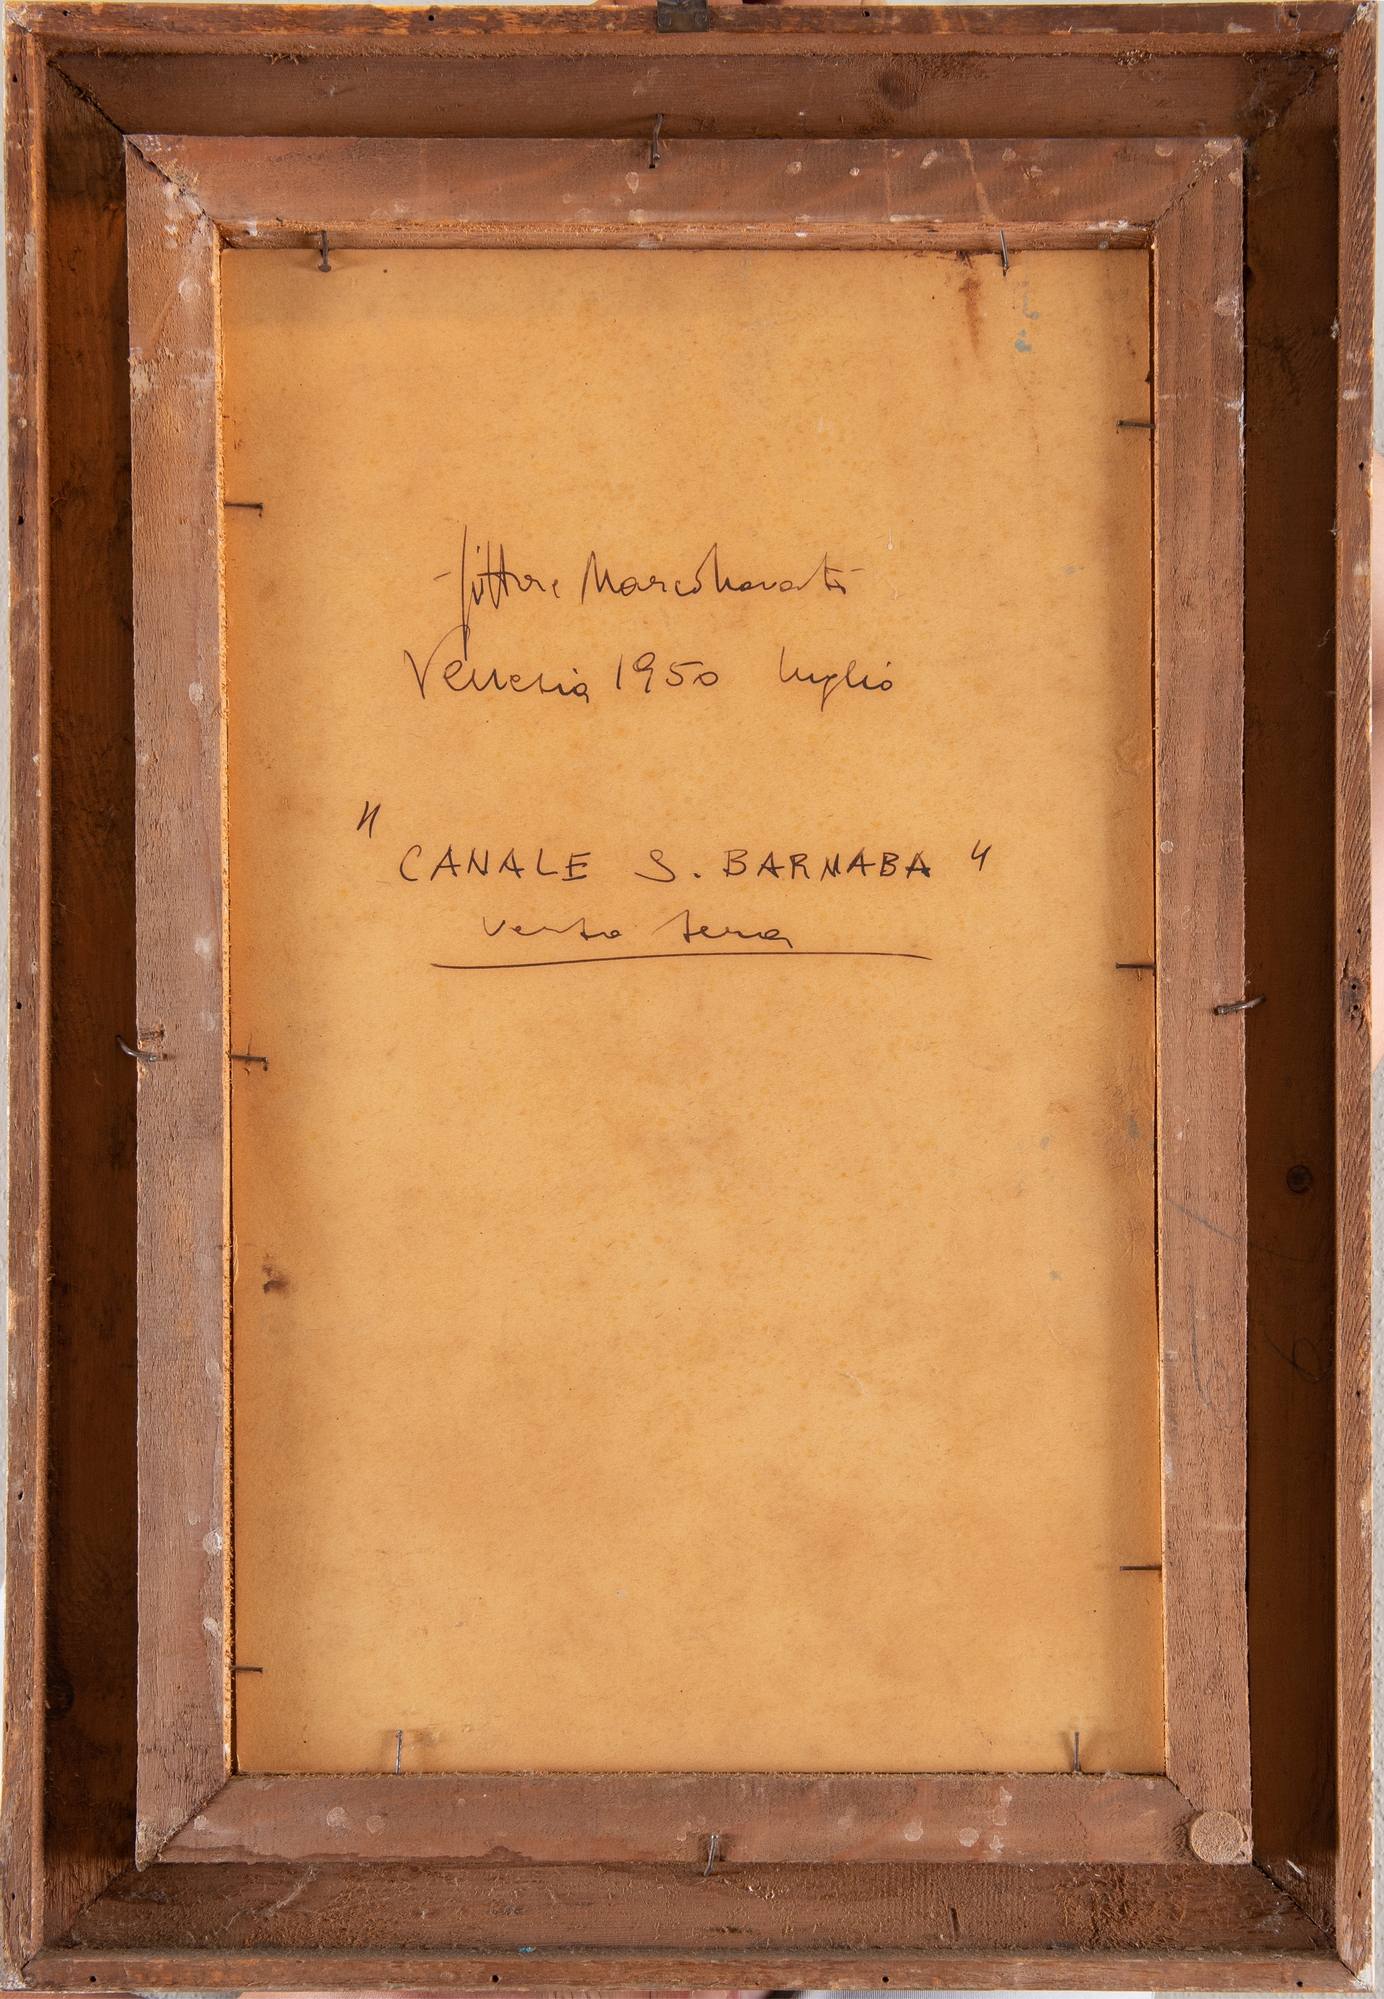 - pittore Marco Novati -
Venezia 1950 luglio
" CANALE S. BARNABA "
verso sera